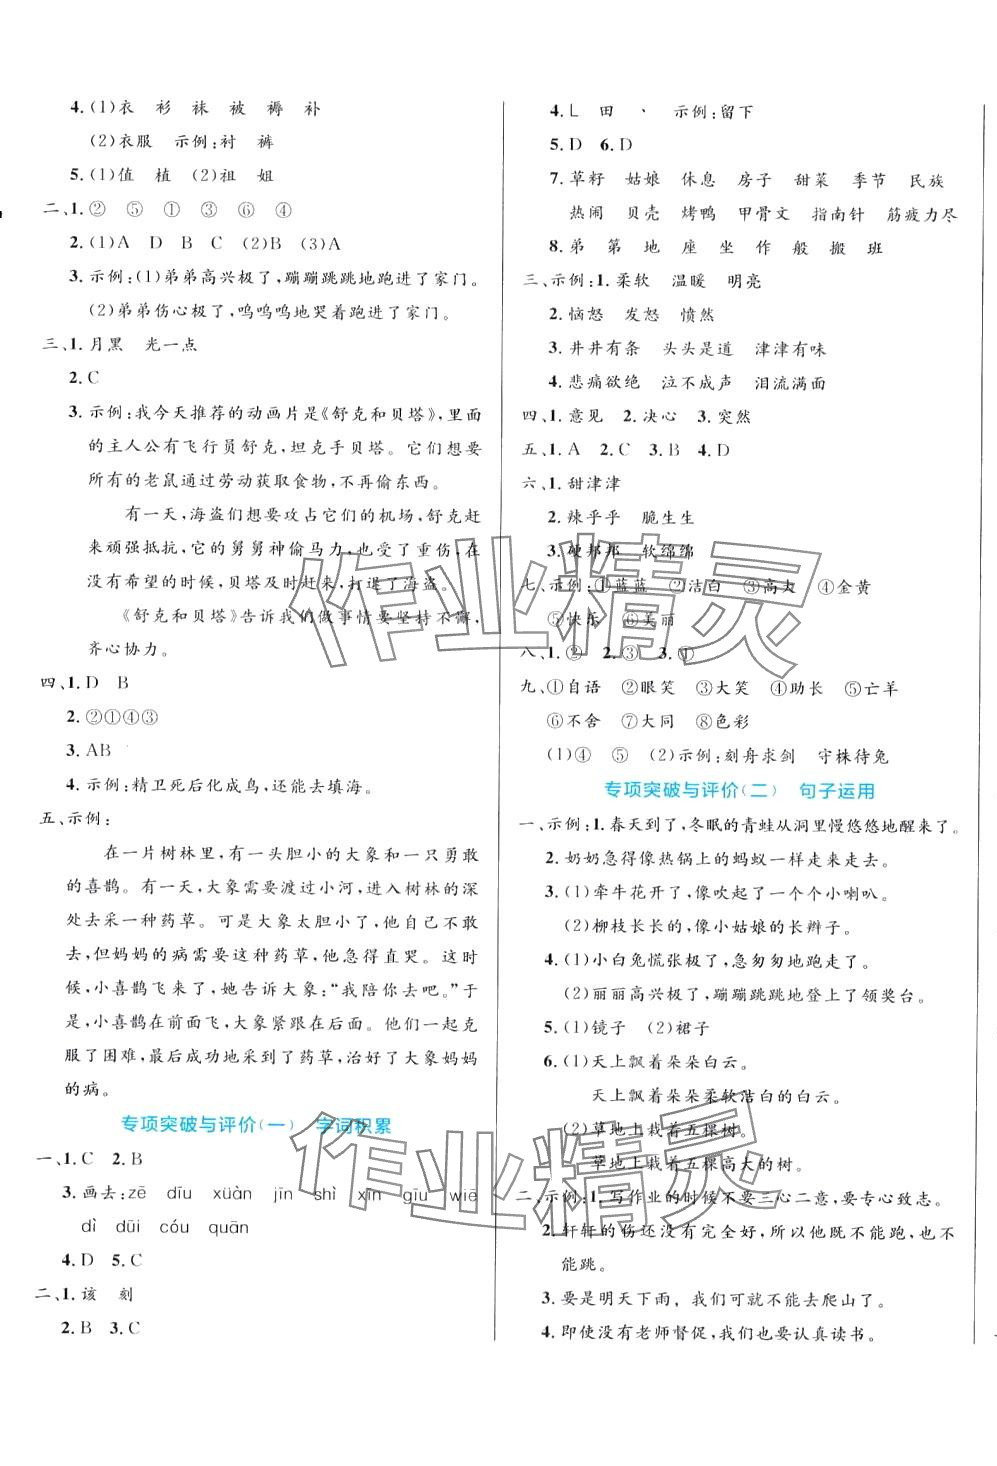 4. (1)衣 衫 袜 被 褥 补
(2)衣服 示例:衬 裤
5. (1)值 植 (2)祖 姐
二、1. ② ⑤ ① ③ ⑥ ④
2. (1)A D B C (2)B (3)A
3. 示例:(1)弟弟高兴极了,蹦蹦跳跳地跑进了家门。
(2)弟弟伤心极了,呜呜呜地哭着跑进了家门。
三、1. 月黑 光一点
2. C
3. 示例:我今天推荐的动画片是《舒克和贝塔》,里面
的主人公有飞行员舒克,坦克手贝塔。它们想要
所有的老鼠通过劳动获取食物,不再偷东西。
有一天,海盗们想要攻占它们的机场,舒克赶
来顽强抵抗,它的舅舅神偷马力,也受了重伤,在
没有希望的时候,贝塔及时赶来,打进了海盗。
《舒克和贝塔》告诉我们做事情要坚持不懈、
齐心协力。
四、1. D B
2. ②①④③
3. AB
4. 示例:精卫死后化成鸟,还能去填海。
五、示例:
在一片树林里,有一头胆小的大象和一只勇敢
的喜鹊。有一天,大象需要渡过小河,进入树林的深
处去采一种药草。可是大象太胆小了,他自己不敢
去,但妈妈的病需要这种药草,他急得直哭。这时
候,小喜鹊飞来了,她告诉大象:“我陪你去吧。”于
是,小喜鹊在前面飞,大象紧跟在后面。他们一起克
服了困难,最后成功地采到了药草,治好了大象妈妈
的病。
专项突破与评价(一) 字词积累
一、1. C 2. B
3. 画去:zē dīu xüàn jīn shì xīn gīu wiē
dì dūi cóu quān
4. D 5. C
二、1. 该 刻
2. B 3. C
4. L 田 丶 示例:留下
5. D 6. D
7. 草籽 姑娘 休息 房子 甜菜 季节 民族
热闹 贝壳 烤鸭 甲骨文 指南针 筋疲力尽
8. 弟 第 地 座 坐 作 般 搬 班
三、示例:1. 柔软 温暖 明亮
2. 恼怒 发怒 愤然
3. 井井有条 头头是道 津津有味
4. 悲痛欲绝 泣不成声 泪流满面
四、1. 意见 2. 决心 3. 突然
五、1. A 2. C 3. B 4. D
六、1. 甜津津
2. 辣乎乎 脆生生
3. 硬邦邦 软绵绵
七、示例:①蓝蓝 ②洁白 ③高大 ④金黄
⑤快乐 ⑥美丽
八、1. ② 2. ③ 3. ①
九、①自语 ②眼笑 ③大笑 ④助长 ⑤亡羊
⑥不舍 ⑦大同 ⑧色彩
(1)④ ⑤ (2)示例:刻舟求剑 守株待兔
专项突破与评价(二) 句子运用
一、示例:1. 春天到了,冬眠的青蛙从洞里慢悠悠地醒来了。
2. 奶奶急得像热锅上的蚂蚁一样走来走去。
3. (1)牵牛花开了,像吹起了一个个小喇叭。
(2)柳枝长长的,像小姑娘的长辫子。
4. (1)小白兔慌张极了,急匆匆地跑走了。
(2)丽丽高兴极了,蹦蹦跳跳地登上了领奖台。
5. (1)镜子 (2)裙子
6. (1)天上飘着朵朵白云。
天上飘着朵朵柔软洁白的白云。
(2)草地上栽着五棵树。
草地上栽着五棵高大的树。
二、示例:1. 写作业的时候不要三心二意,要专心致志。
2. 轩轩的伤还没有完全好,所以他既不能跑,也不
能跳。
3. 要是明天下雨,我们可就不能去爬山了。
4. 即使没有老师督促,我们也要认真读书。
作业精灵
作业精灵